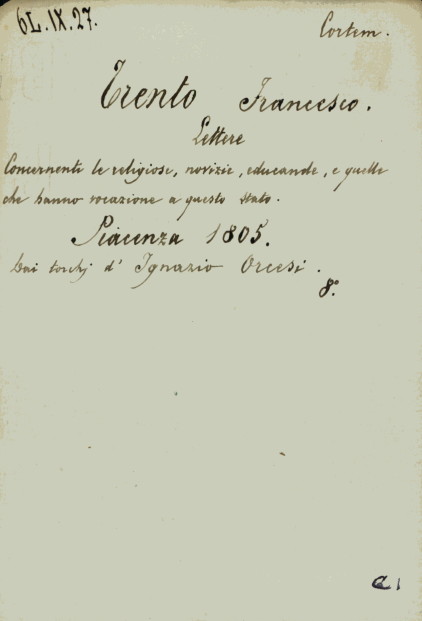 6L.IX.27.
Cortem.
Trento Francesco.
Lettere
Concernenti le religiose, novizie, educande, e quelle
che hanno vocazione a questo stato.
Piacenza 1805.
Dai torchj d' Ignazio Orcesi.
8.°